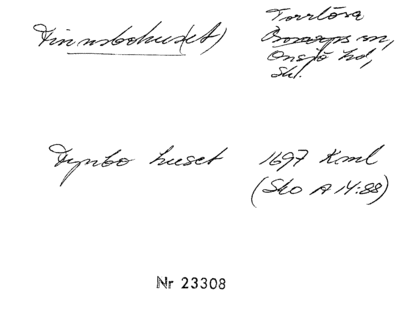 Finnsbohus(et)
Torrlösa
Bosarps sn,
Onsjö hd,
Skl.
Fynbo huset 1697 Kml
(Sko A 14:88)
Nr 23308